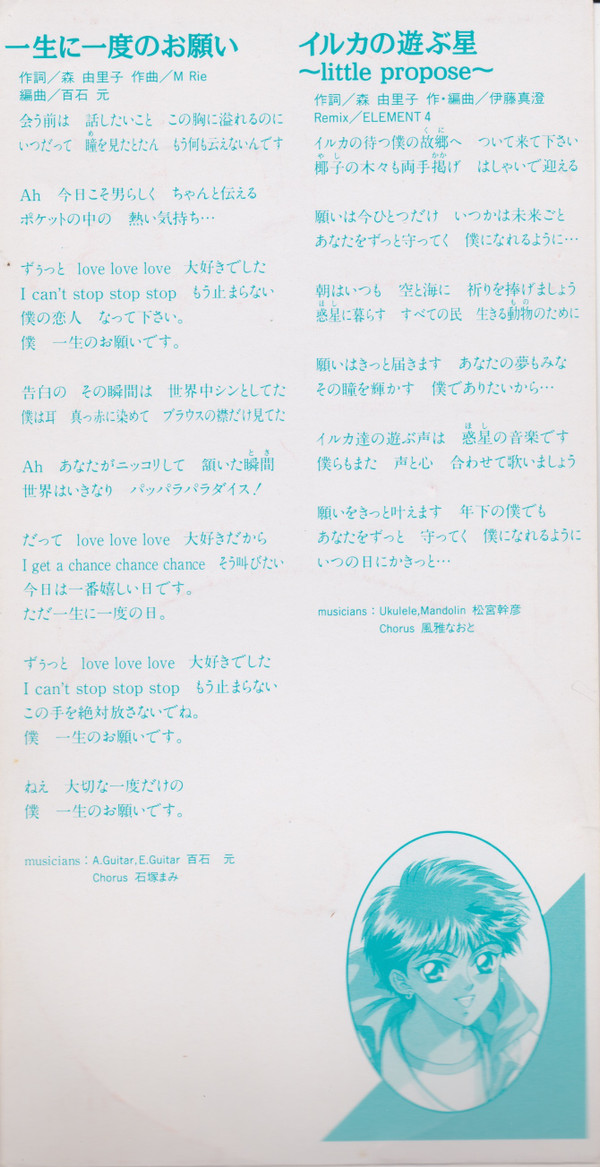 一生に一度のお願い
作詞／森 由里子 作曲／M Rie
編曲／百石 元
会う前は 話したいこと この胸に溢れるのに
いつだって 瞳を見たとたん もう何も云えないんです
Ah 今日こそ男らしく ちゃんと伝える
ポケットの中の 熱い気持ち…
ずぅっと love love love 大好きでした
I can't stop stop stop もう止まらない
僕の恋人 なって下さい。
僕 一生のお願いです。
告白の その瞬間は 世界中シンとしてた
僕は耳 真っ赤に染めて ブラウスの襟だけ見てた
Ah あなたがニッコリして 頷いた瞬間
世界はいきなり パッパラパラダイス！
だって love love love 大好きだから
I get a chance chance chance そう叫びたい
今日は一番嬉しい日です。
ただ一生に一度の日。
ずぅっと love love love 大好きでした
I can't stop stop stop もう止まらない
この手を絶対放さないでね。
僕 一生のお願いです。
ねえ 大切な一度だけの
僕 一生のお願いです。
musicians：A.Guitar,E.Guitar 百石 元
Chorus 石塚まみ
イルカの遊ぶ星
〜little propose〜
作詞／森 由里子 作・編曲／伊藤真澄
Remix／ELEMENT 4
イルカの待つ僕の故郷へ ついて来て下さい
椰子の木々も両手掲げ はしゃいで迎える
願いは今ひとつだけ いつかは未来ごと
あなたをずっと守ってく 僕になれるように…
朝はいつも 空と海に 祈りを捧げましょう
惑星に暮らす すべての民 生きる動物のために
願いはきっと届きます あなたの夢もみな
その瞳を輝かす 僕でありたいから…
イルカ達の遊ぶ声は 惑星の音楽です
僕らもまた 声と心 合わせて歌いましょう
願いをきっと叶えます 年下の僕でも
あなたをずっと 守ってく 僕になれるように
いつの日にかきっと…
musicians：Ukulele,Mandolin 松宮幹彦
Chorus 風雅なおと